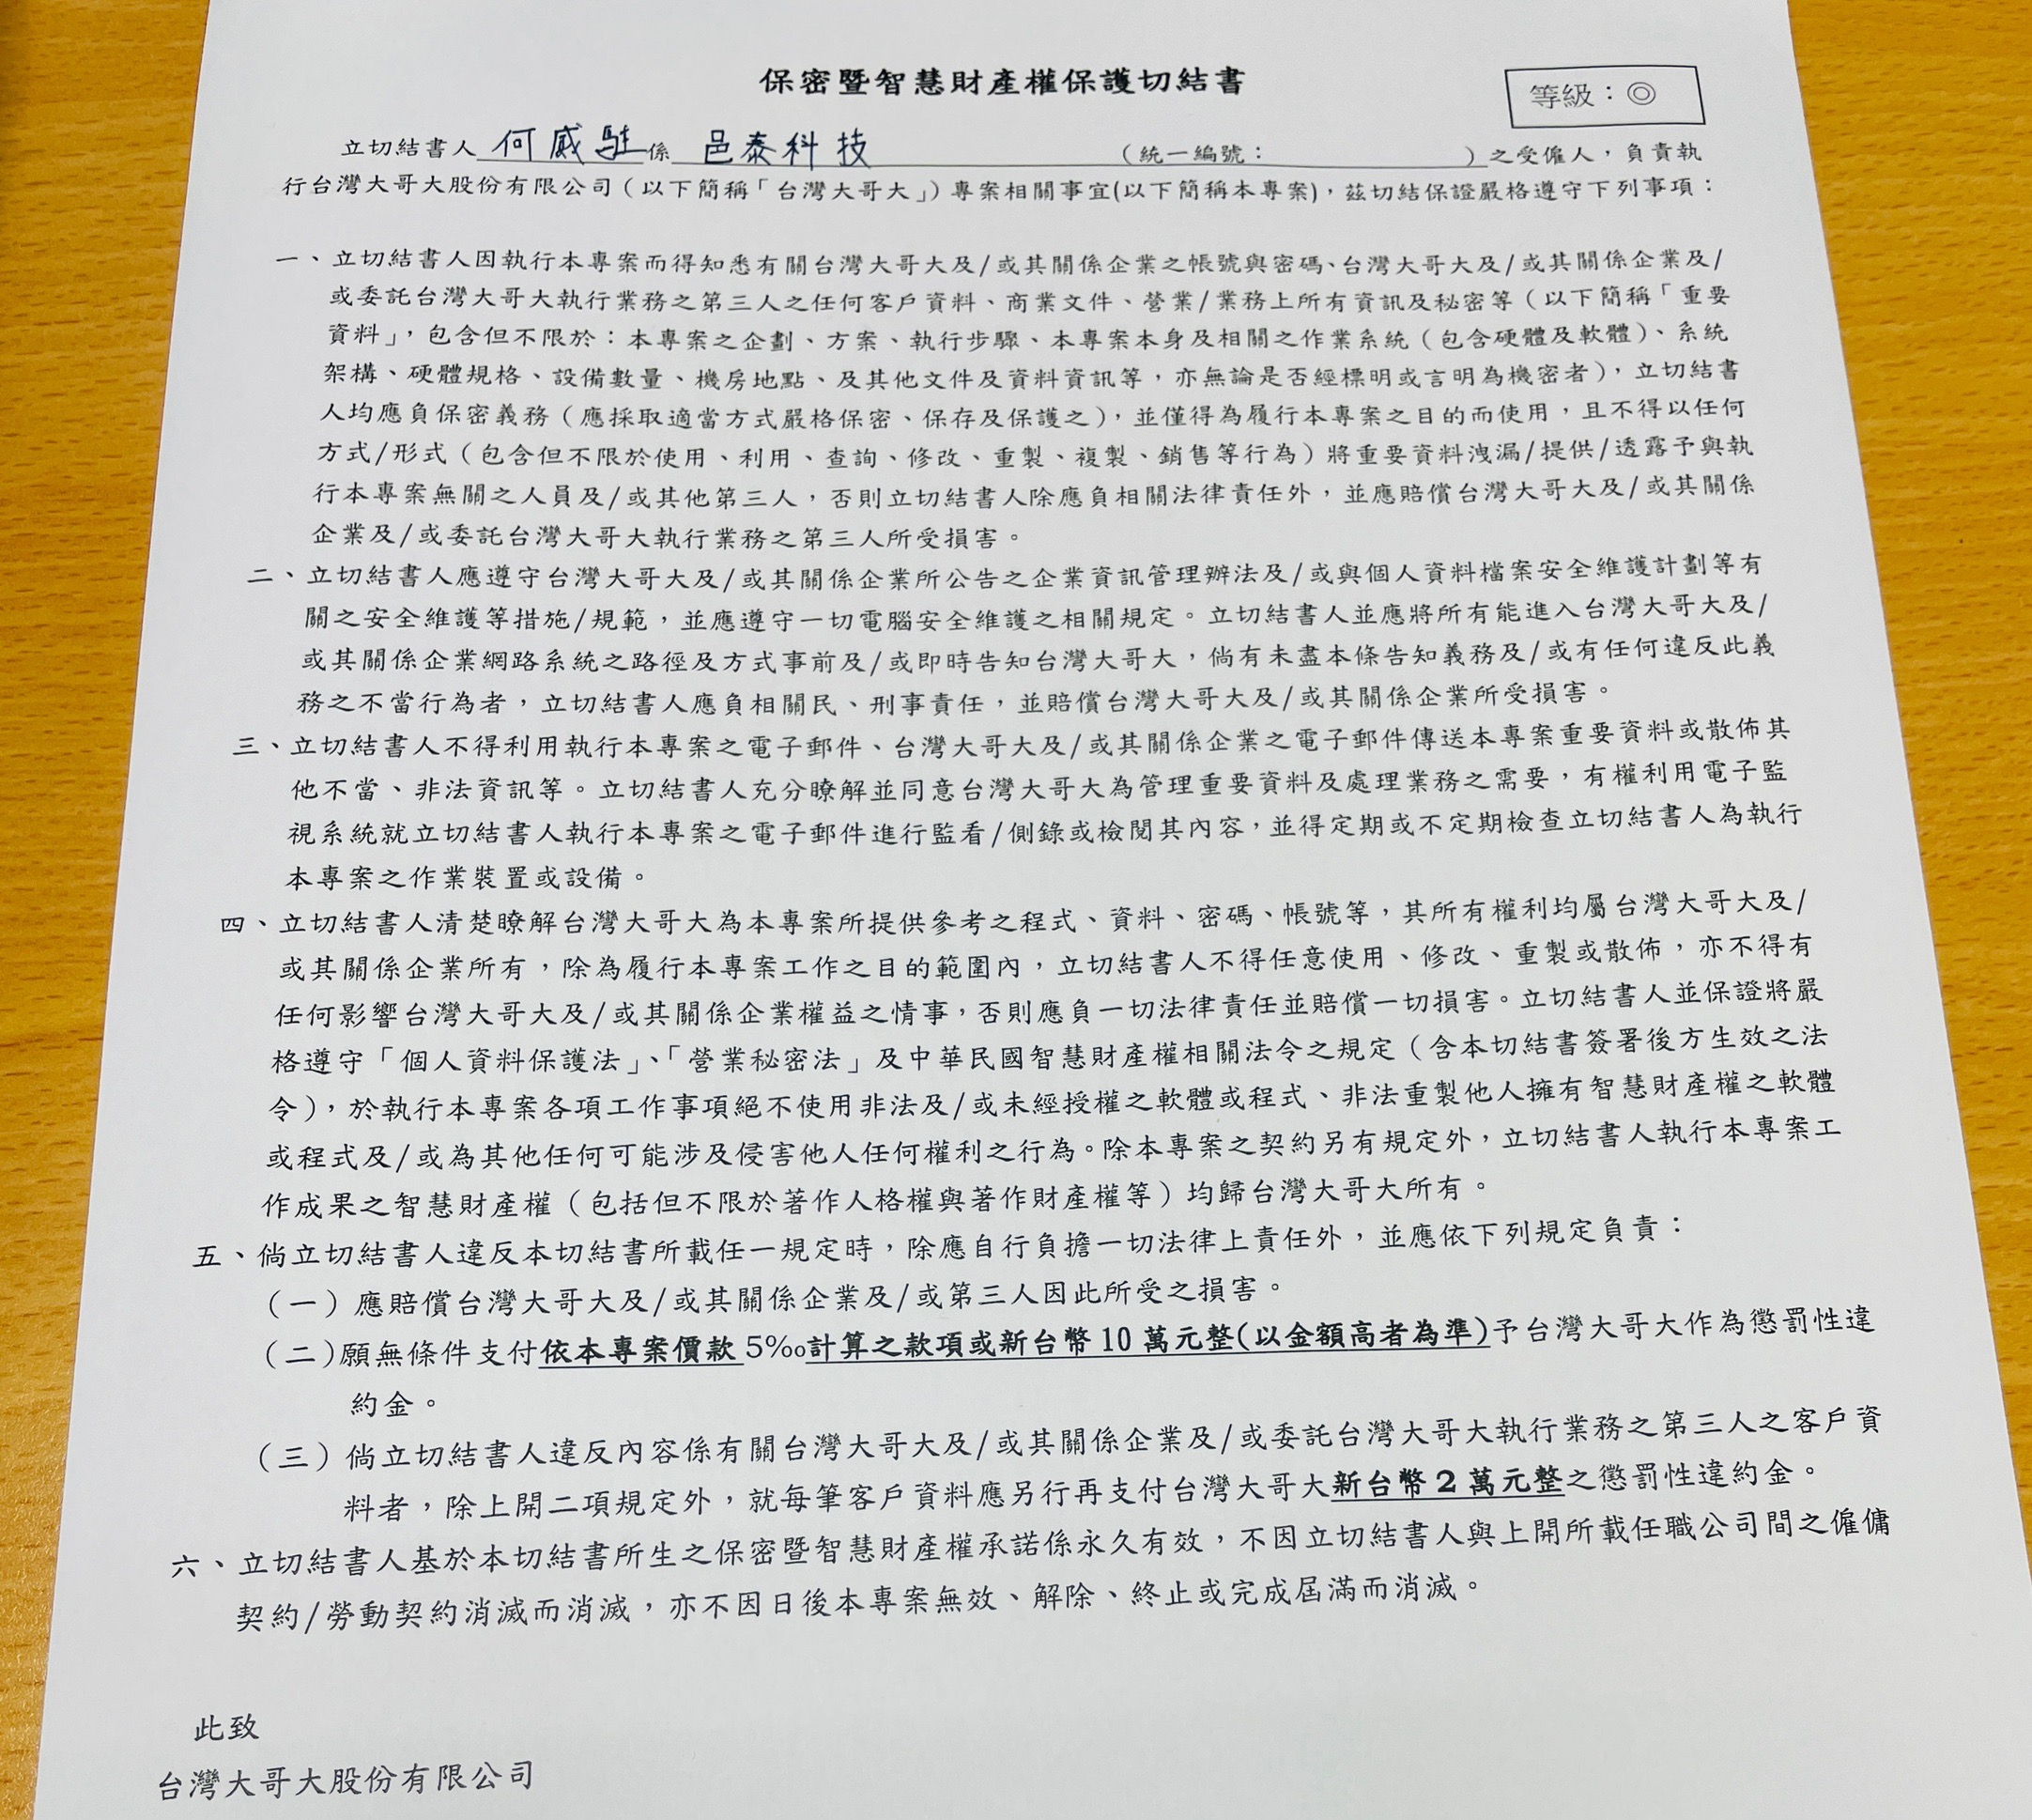 保密暨智慧財產權保護切結書
等級：◎
立切結書人 何威駐 係 邑泰科技 （統一編號： ）之受僱人，負責執
行台灣大哥大股份有限公司（以下簡稱「台灣大哥大」）專案相關事宜(以下簡稱本專案)，茲切結保證嚴格遵守下列事項：
一、立切結書人因執行本專案而得知悉有關台灣大哥大及/或其關係企業之帳號與密碼、台灣大哥大及/或其關係企業及/
或委託台灣大哥大執行業務之第三人之任何客戶資料、商業文件、營業/業務上所有資訊及秘密等（以下簡稱「重要
資料」，包含但不限於：本專案之企劃、方案、執行步驟、本專案本身及相關之作業系統（包含硬體及軟體）、系統
架構、硬體規格、設備數量、機房地點、及其他文件及資料資訊等，亦無論是否經標明或言明為機密者），立切結書
人均應負保密義務（應採取適當方式嚴格保密、保存及保護之），並僅得為履行本專案之目的而使用，且不得以任何
方式/形式（包含但不限於使用、利用、查詢、修改、重製、複製、銷售等行為）將重要資料洩漏/提供/透露予與執
行本專案無關之人員及/或其他第三人，否則立切結書人除應負相關法律責任外，並應賠償台灣大哥大及/或其關係
企業及/或委託台灣大哥大執行業務之第三人所受損害。
二、立切結書人應遵守台灣大哥大及/或其關係企業所公告之企業資訊管理辦法及/或與個人資料檔案安全維護計劃等有
關之安全維護等措施/規範，並應遵守一切電腦安全維護之相關規定。立切結書人並應將所有能進入台灣大哥大及/
或其關係企業網路系統之路徑及方式事前及/或即時告知台灣大哥大，倘有未盡本條告知義務及/或有任何違反此義
務之不當行為者，立切結書人應負相關民、刑事責任，並賠償台灣大哥大及/或其關係企業所受損害。
三、立切結書人不得利用執行本專案之電子郵件、台灣大哥大及/或其關係企業之電子郵件傳送本專案重要資料或散佈其
他不當、非法資訊等。立切結書人充分瞭解並同意台灣大哥大為管理重要資料及處理業務之需要，有權利用電子監
視系統就立切結書人執行本專案之電子郵件進行監看/側錄或檢閱其內容，並得定期或不定期檢查立切結書人為執行
本專案之作業裝置或設備。
四、立切結書人清楚瞭解台灣大哥大為本專案所提供參考之程式、資料、密碼、帳號等，其所有權利均屬台灣大哥大及/
或其關係企業所有，除為履行本專案工作之目的範圍內，立切結書人不得任意使用、修改、重製或散佈，亦不得有
任何影響台灣大哥大及/或其關係企業權益之情事，否則應負一切法律責任並賠償一切損害。立切結書人並保證將嚴
格遵守「個人資料保護法」、「營業秘密法」及中華民國智慧財產權相關法令之規定（含本切結書簽署後方生效之法
令），於執行本專案各項工作事項絕不使用非法及/或未經授權之軟體或程式、非法重製他人擁有智慧財產權之軟體
或程式及/或為其他任何可能涉及侵害他人任何權利之行為。除本專案之契約另有規定外，立切結書人執行本專案工
作成果之智慧財產權（包括但不限於著作人格權與著作財產權等）均歸台灣大哥大所有。
五、倘立切結書人違反本切結書所載任一規定時，除應自行負擔一切法律上責任外，並應依下列規定負責：
（一）應賠償台灣大哥大及/或其關係企業及/或第三人因此所受之損害。
（二)願無條件支付依本專案價款 5‰計算之款項或新台幣 10 萬元整(以金額高者為準)予台灣大哥大作為懲罰性違
約金。
（三）倘立切結書人違反內容係有關台灣大哥大及/或其關係企業及/或委託台灣大哥大執行業務之第三人之客戶資
料者，除上開二項規定外，就每筆客戶資料應另行再支付台灣大哥大新台幣 2 萬元整之懲罰性違約金。
六、立切結書人基於本切結書所生之保密暨智慧財產權承諾係永久有效，不因立切結書人與上開所載任職公司間之僱傭
契約/勞動契約消滅而消滅，亦不因日後本專案無效、解除、終止或完成屆滿而消滅。
此致
台灣大哥大股份有限公司